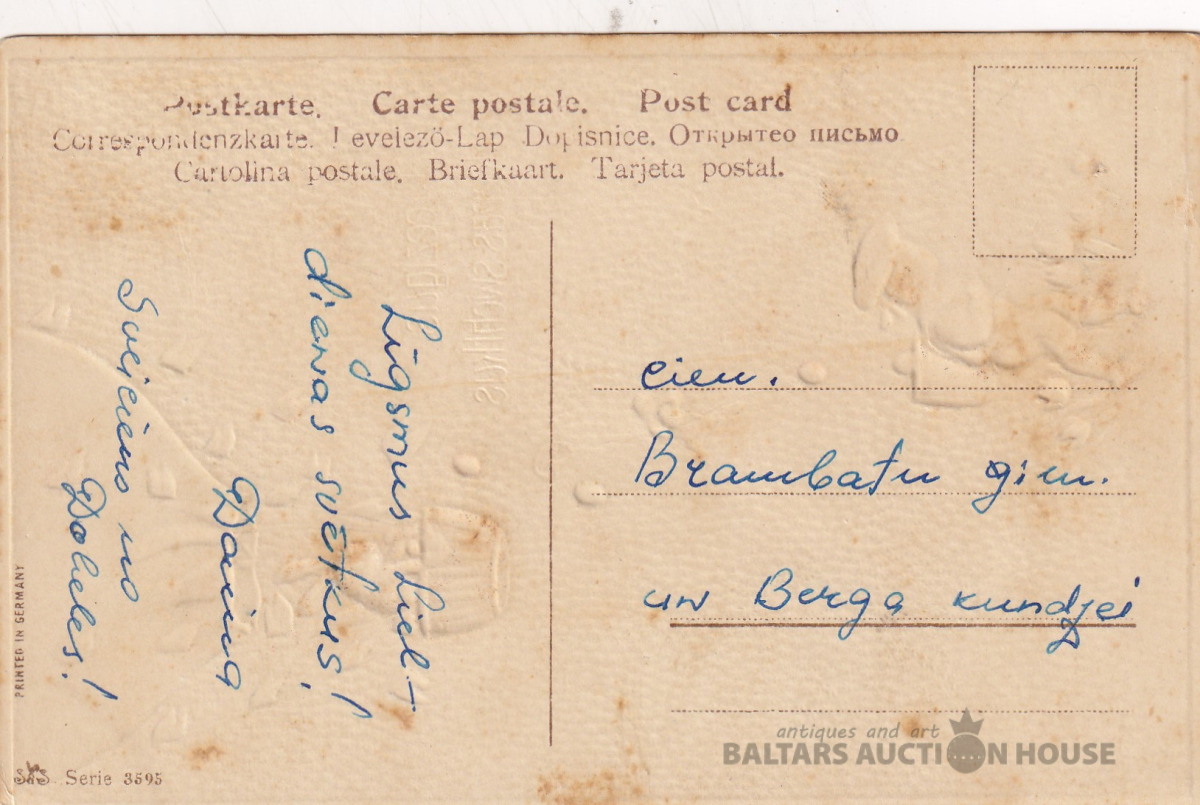 Postkarte. Carte postale. Post card
Correspondenzkarte. Levelező-Lap Dopisnice. Открытео письмо
Cartolina postale. Briefkaart. Tarjeta postal.
Līgsmus Liel-
dienas svētkus!
Daina
Sveiciens no
cien.
Brambatu ģim.
un Berga kundzei
PRINTED IN GERMANY
S&S Serie 3595
antiques and art
BALTARS AUCTION HOUSE